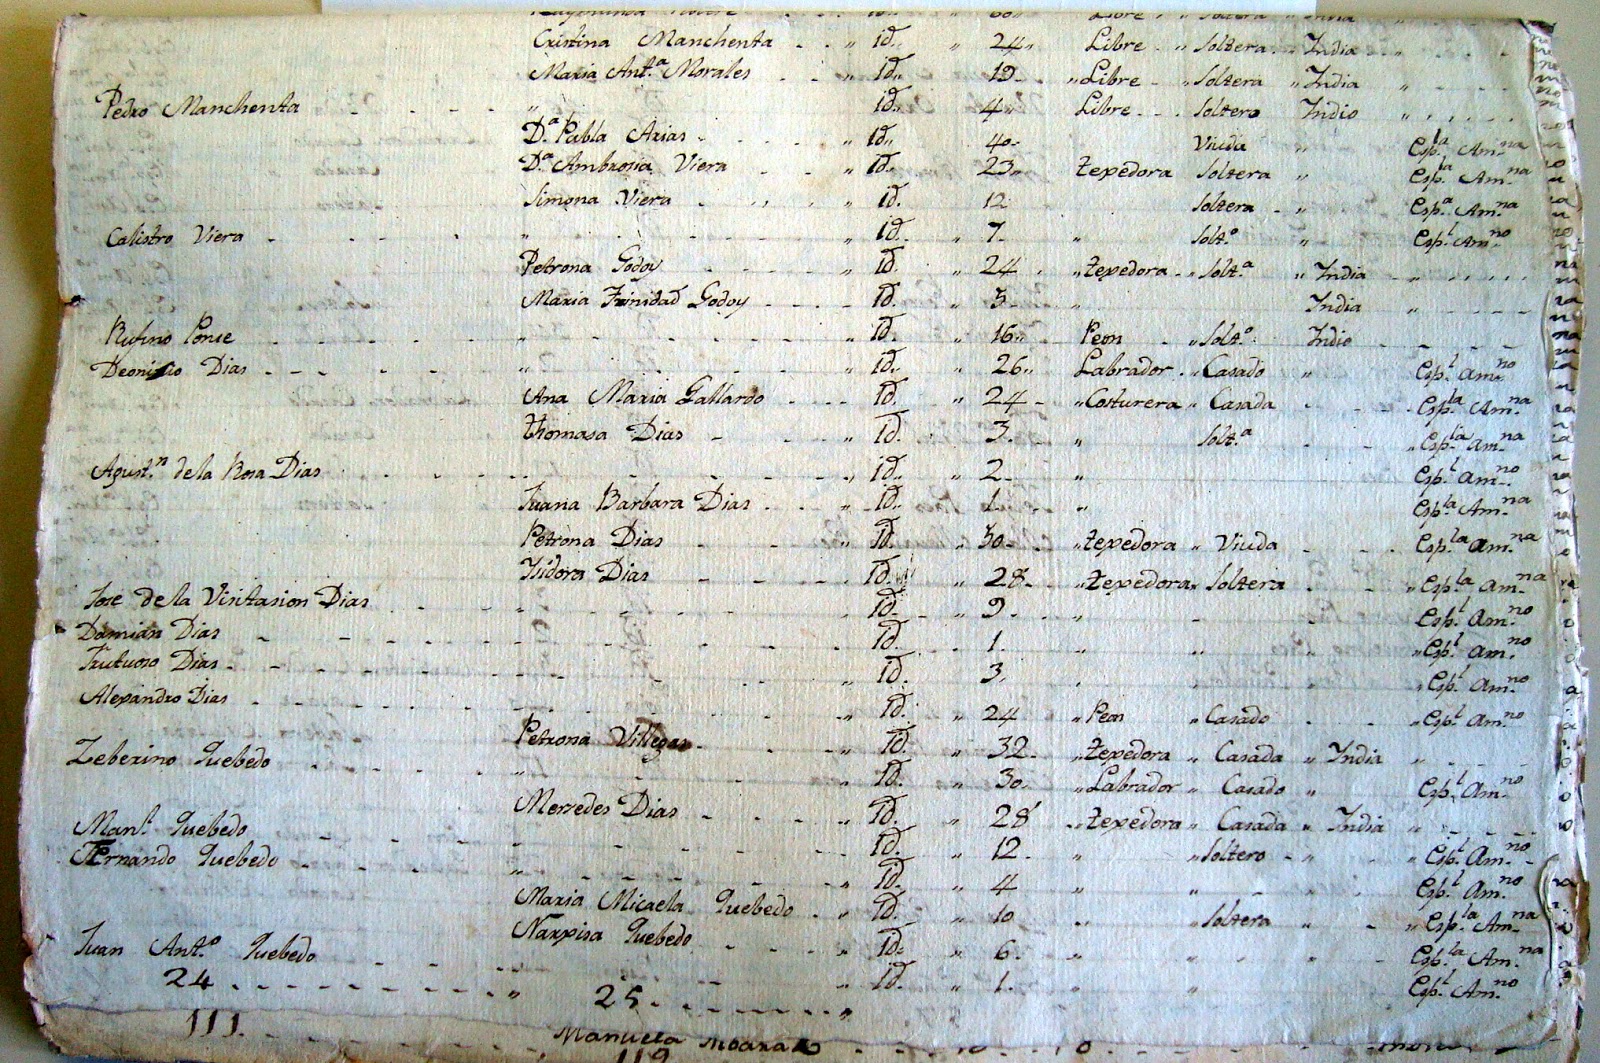 Cristina Manchenta id. 24 Libre Soltera India
Maria Ant.ª Morales id. 19 Libre Soltera India
Pedro Manchenta id. 4 Libre Soltero Indio
D.ª Pabla Arias id. 40 Viuda Esp.la Am.na
D.ª Ambrosia Viera id. 23 texedora Soltera Esp.la Am.na
Simona Viera id. 12 Soltera Esp.a Am.na
Calistro Viera id. 7 Solt.º Esp.l Am.no
Petrona Godoy id. 24 texedora Solt.ª India
Maria Trinidad Godoy id. 5 India
Rufino Ponse id. 16 Peon Solt.º Indio
Deonisio Dias id. 26 Labrador Casado Esp.l Am.no
Ana Maria Gallardo id. 24 Costurera Casada Esp.la Am.na
Thomasa Dias id. 3 Solt.ª Esp.la Am.na
Agust.n de la Rosa Dias id. 2 Esp.l Am.no
Juana Barbara Dias id. 1 Esp.la Am.na
Petrona Dias id. 50 texedora Viuda Esp.la Am.na
Isidora Dias id. 28 texedora Soltera Esp.la Am.na
Jose de la Visitasion Dias id. 9 Esp.l Am.no
Damian Dias id. 1 Esp.l Am.no
Frutuoso Dias id. 3 Esp.l Am.no
Alexandro Dias id. 24 Peon Casado Esp.l Am.no
Petrona Villegas id. 32 texedora Casada India
Zeberino Quebedo id. 30 Labrador Casado Esp.l Am.no
Merzedes Dias id. 28 texedora Casada India
Man.l Quebedo id. 12 Soltero Esp.l Am.no
Fernando Quebedo id. 4 Esp.l Am.no
Maria Micaela Quebedo id. 10 Soltera Esp.la Am.na
Narzisa Quebedo id. 6 Esp.la Am.na
Juan Ant.º Quebedo id. 1 Esp.l Am.no
24 25
111 Manuela
119